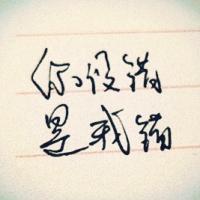 你没错
是我错